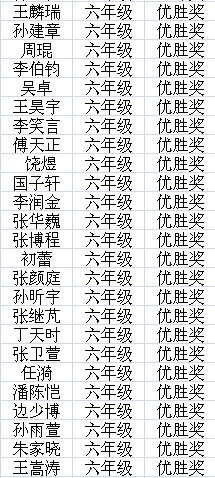 王麟瑞 六年级 优胜奖
孙建章 六年级 优胜奖
周琨 六年级 优胜奖
李伯钧 六年级 优胜奖
吴卓 六年级 优胜奖
王昊宇 六年级 优胜奖
李笑言 六年级 优胜奖
傅天正 六年级 优胜奖
饶煜 六年级 优胜奖
国子轩 六年级 优胜奖
李润金 六年级 优胜奖
张华巍 六年级 优胜奖
张博程 六年级 优胜奖
初蕾 六年级 优胜奖
张颜庭 六年级 优胜奖
孙昕宇 六年级 优胜奖
张继芃 六年级 优胜奖
丁天时 六年级 优胜奖
张卫萱 六年级 优胜奖
任漪 六年级 优胜奖
潘陈恺 六年级 优胜奖
边少博 六年级 优胜奖
孙雨萱 六年级 优胜奖
朱家晓 六年级 优胜奖
王嵩涛 六年级 优胜奖